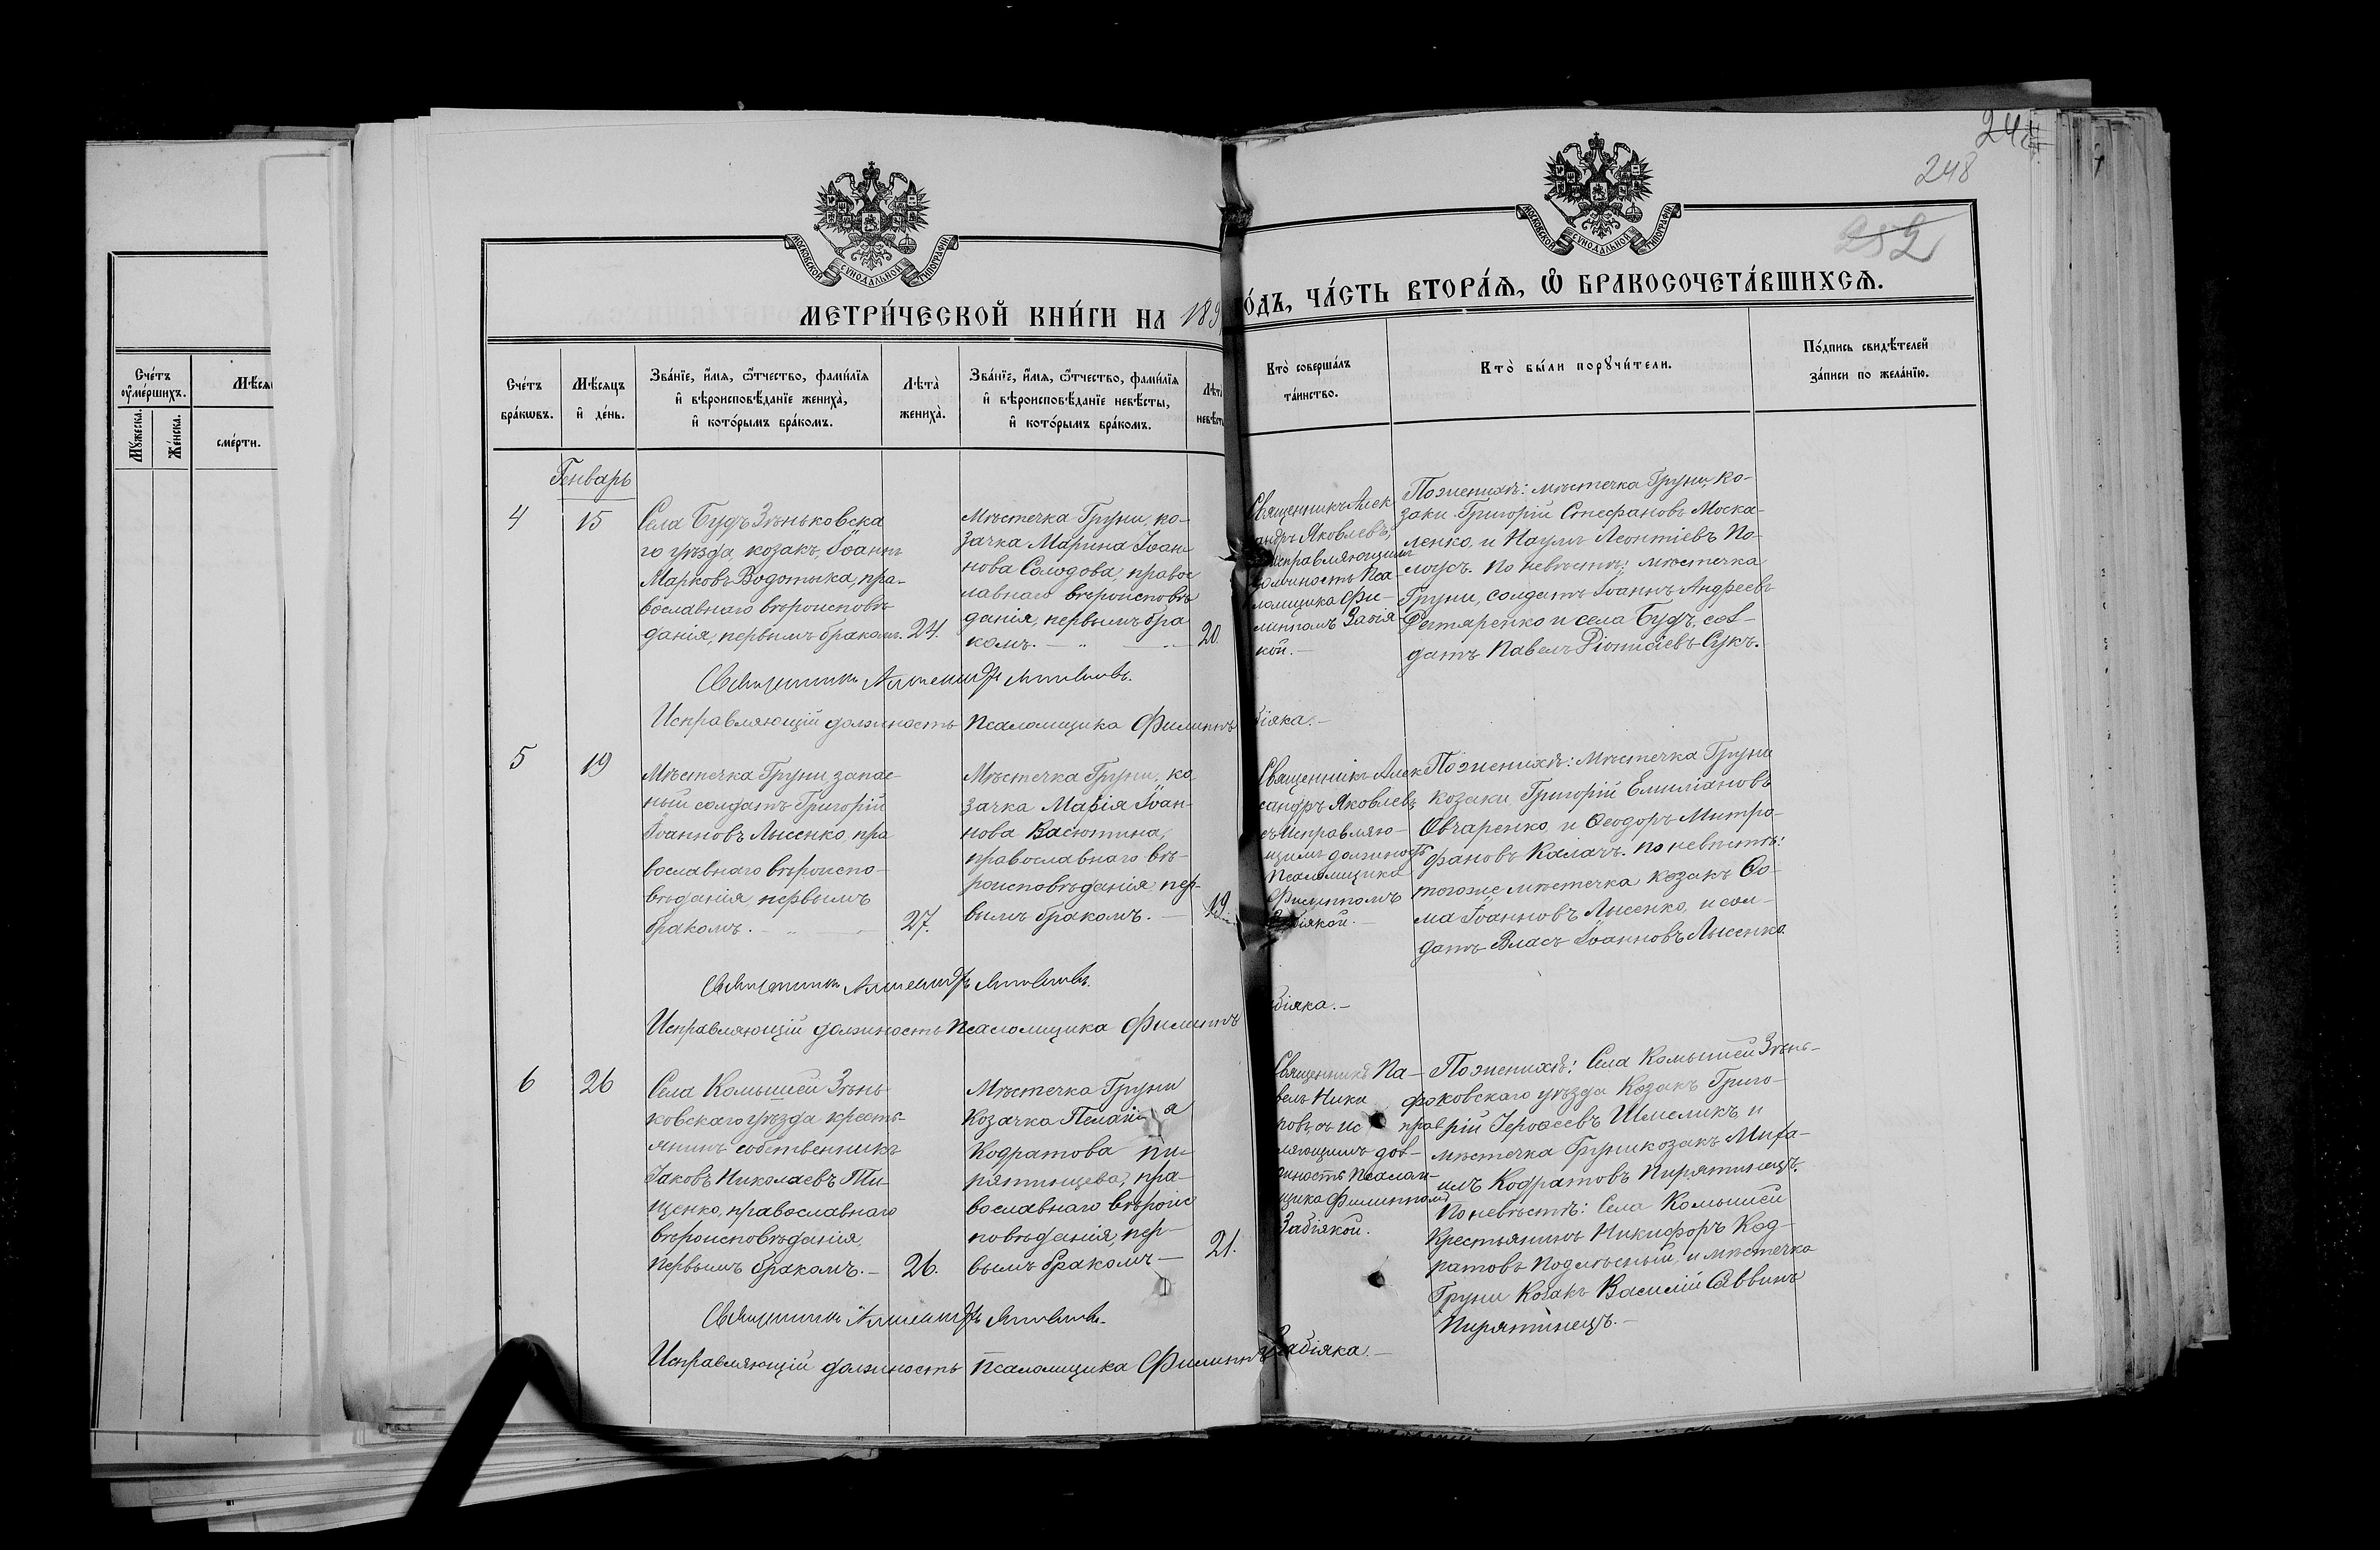 244
248
252
МОСКОВСКОЙ СѴНОДАЛЬНОЙ ТИПОГРАФІИ
МОСКОВСКОЙ СѴНОДАЛЬНОЙ ТИПОГРАФІИ
МЕТРИ́ЧЕСКОЙ КНИ́ГИ НА 189
ГО́ДЪ, ЧА́СТЬ ВТОРА́Ѧ, Ѽ БРАКОСОЧЕТА́ВШИХСѦ.
Сче́тъ ᲂу҆ме́ршихъ.
Мꙋ́жеска.
Же́нска.
Мѣ́сѧ
сме́рти.
Сче́тъ бра́кѡвъ.
Мѣ́сѧцъ и҆ де́нь.
Зва́нїе, и҆́мѧ, ѻ҆́тчество, фами́лїѧ
и҆ вѣроисповѣ́данїе жениха̀,
и҆ кото́рымъ бра́комъ.
Лѣ́та жениха̀.
Зва́нїе, и҆́мѧ, ѻ҆́тчество, фами́лїѧ
и҆ вѣроисповѣ́данїе невѣ́сты,
и҆ кото́рымъ бра́комъ.
Лѣ́та невѣ́сты
Кто̀ соверша́лъ
та́инство.
Кто̀ бы́ли порꙋчи́тели.
По́дпись свидѣ́телей
за́писи по жела́нїю.
Генварь
4
15
Села Будъ Зѣньковска
го уѣзда козакъ, Іоаннъ
Марковъ Водотыка, пра-
вославнаго вѣроисповѣ
данія, первымъ бракомъ.
24.
Мѣстечка Груни, ко-
зачка Марина Іоан-
нова Солодова, правос
лавнаго вѣроисповѣ
данія, первымъ бра
комъ.
20
Священникъ Алек
андръ Яковлевъ,
исправляющимъ
должность Пса-
ломщика Фи-
липпомъ Забія-
кой.
По женихѣ: мѣстечка Груни, ко-
заки Григорій Стефановъ Моска-
ленко, и Наумъ Леонтіевъ По-
лоусъ. По невѣстѣ: мѣстечка
Груни, солдатъ Іоаннъ Андреевъ
и села Будъ, сол-
датъ Павелъ Сукъ.
Священникъ Александръ Яковлевъ.
Исправляющій должность Псаломщика Филиппъ
біяка.
5
19
Мѣстечка Груни, запас-
ный солдатъ Григорій
Іоанновъ Лысенко, пра
вославнаго вѣроиспо-
вѣданія, первымъ
бракомъ.
27.
Мѣстечка Груни, ко
зачка Марія Іоан-
нова Васютина,
православнаго вѣ-
роисповѣданія, пер-
вымъ бракомъ.
19
Священникъ Алек
сандръ Яковлевъ
съ исправляю-
щимъ должность
Псаломщика
Филиппомъ
біякой.
По женихѣ: Мѣстечка Груни
козаки Григорій Емиліановъ
Овчаренко, и Ѳеодоръ Митро-
фановъ Калачъ. по невѣстѣ:
тогоже мѣстечка козакъ Ѳо-
ма Іоанновъ Лысенко, и сол-
датъ Власъ Іоанновъ Лысенко
Священникъ Александръ Яковлевъ.
Исправляющій должность Псаломщика Филиппъ
біяка.
6
26
Села Комышей Зѣнь-
ковскаго уѣзда кресть-
янинъ собственникъ
Іаковъ Николаевъ Ти-
щенко, православнаго
вѣроисповѣданія,
первымъ бракомъ.
26.
Мѣстечка Груни
козачка Пелагія
Кодратова Пи-
рятинцева, пра-
вославнаго вѣроис
повѣданія, пер-
вымъ бракомъ
21.
Священникъ Па-
велъ Ники фо
ровъ, съ ис прав
ляющимъ дол-
жность Псалом-
щика Филиппомъ
Забіякой.
По женихѣ: Села Комышей Зѣнь-
ковскаго уѣзда Козакъ Григо-
рій Іерофеевъ Шмеликъ и
мѣстечка Груни козакъ Миха-
илъ Кодратовъ Пирятинецъ.
По невѣстѣ: Села Комышей
Крестьянинъ Никифоръ Код-
ратовъ Подлѣсный, и мѣстечка
Груни Козакъ Василій Саввинъ
Пирятинецъ.
Священникъ Александръ Яковлевъ.
Исправляющій должность Псаломщика Филиппъ Забіяка.